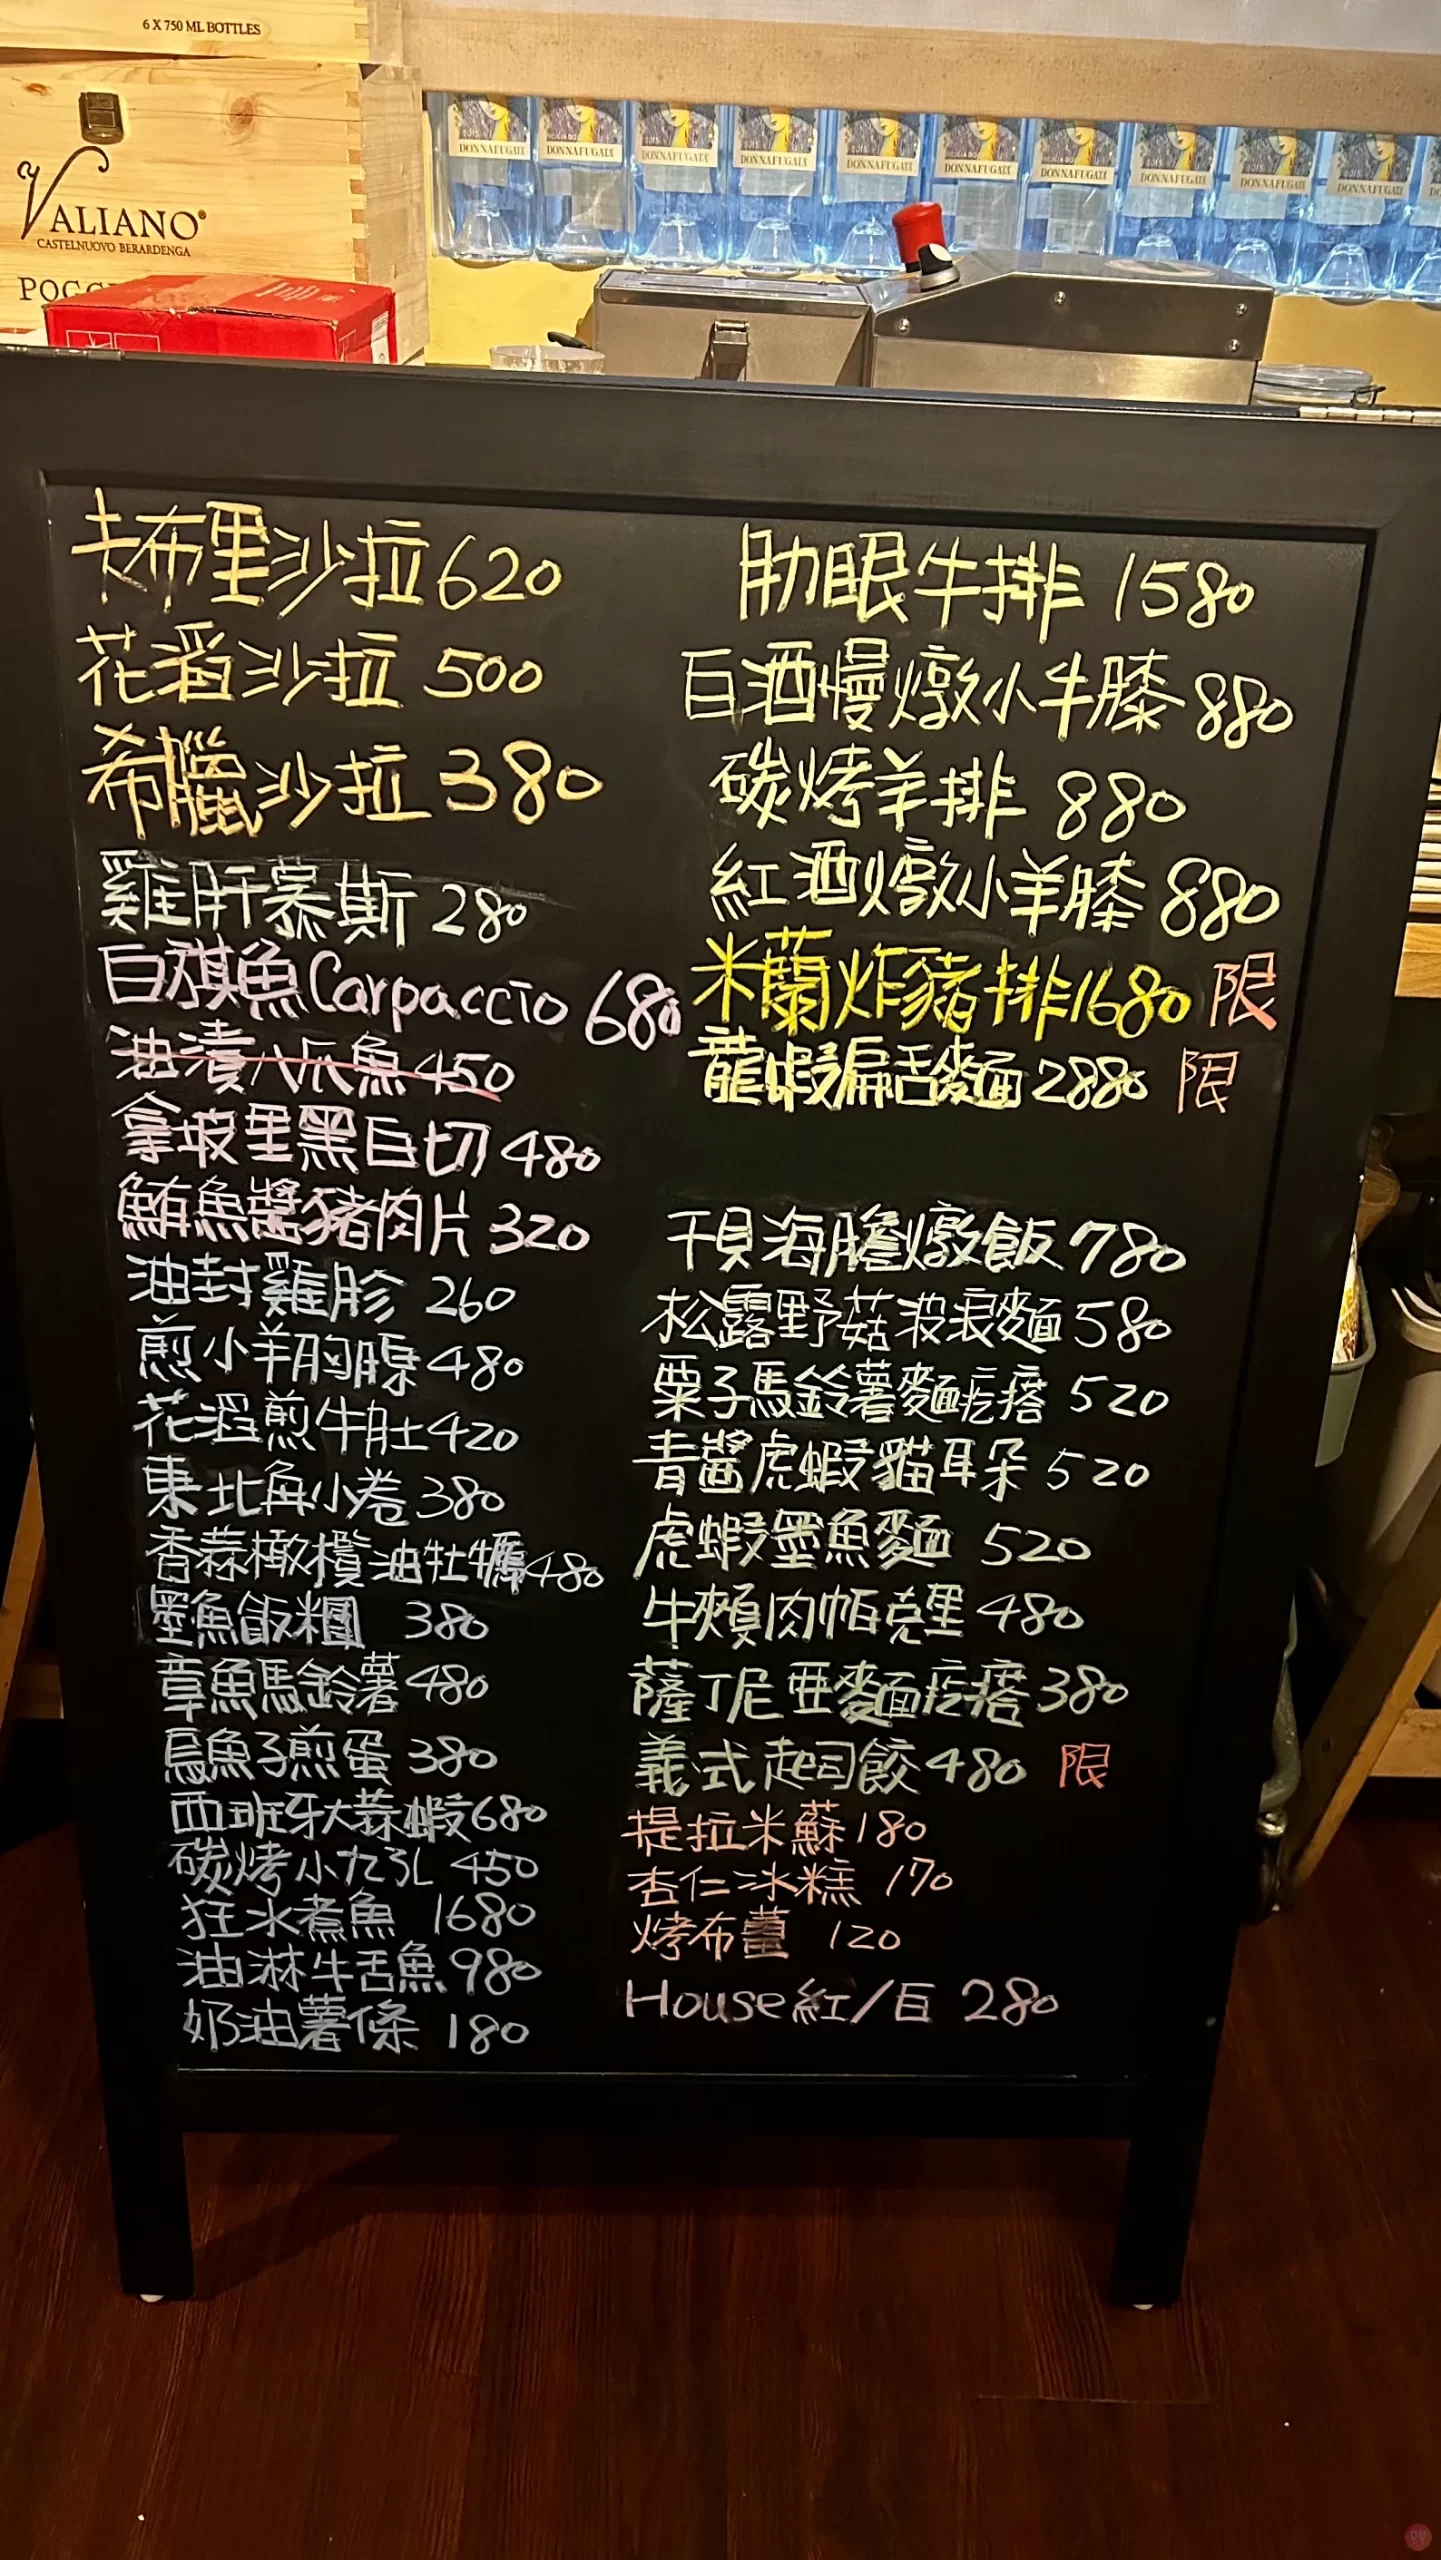 6 X 750 ML BOTTLES
VALIANO
CASTELNUOVO BERARDENGA
DONNAFUGATA
DONNAFUGATA
DONNAFUGATA
DONNAFUGATA
DONNAFUGATA
DONNAFUGATA
DONNAFUGATA
DONNAFUGATA
DONNAFUGATA
DONNAFUGATA
卡布里沙拉 620
花滔沙拉 500
希臘沙拉 380
雞肝慕斯 280
白旗魚Carpaccio 680
油漬八爪魚 450
拿坡里黑白切 480
鮪魚醬豬肉片 320
油封雞胗 260
煎小羊胸腺 480
花滔煎牛肚 420
東北角小卷 380
香蒜橄欖油牡蠣 480
墨魚飯糰 380
章魚馬鈴薯 480
烏魚子煎蛋 380
西班牙大蒜蝦 680
碳烤小九孔 450
狂水煮魚 1680
油淋牛舌魚 980
奶油薯條 180
肋眼牛排 1580
白酒慢燉小牛膝 880
碳烤羊排 880
紅酒燉小羊膝 880
米蘭炸豬排 1680 限
龍蝦扁舌麵 2880 限
干貝海膽燉飯 780
松露野菇波浪麵 580
栗子馬鈴薯麵疙瘩 520
青醬虎蝦貓耳朵 520
虎蝦墨魚麵 520
牛頰肉帕克里 480
薩丁尼亞麵疙瘩 380
義式起司餃 480 限
提拉米蘇 180
杏仁冰糕 170
烤布蕾 120
House紅/白 280